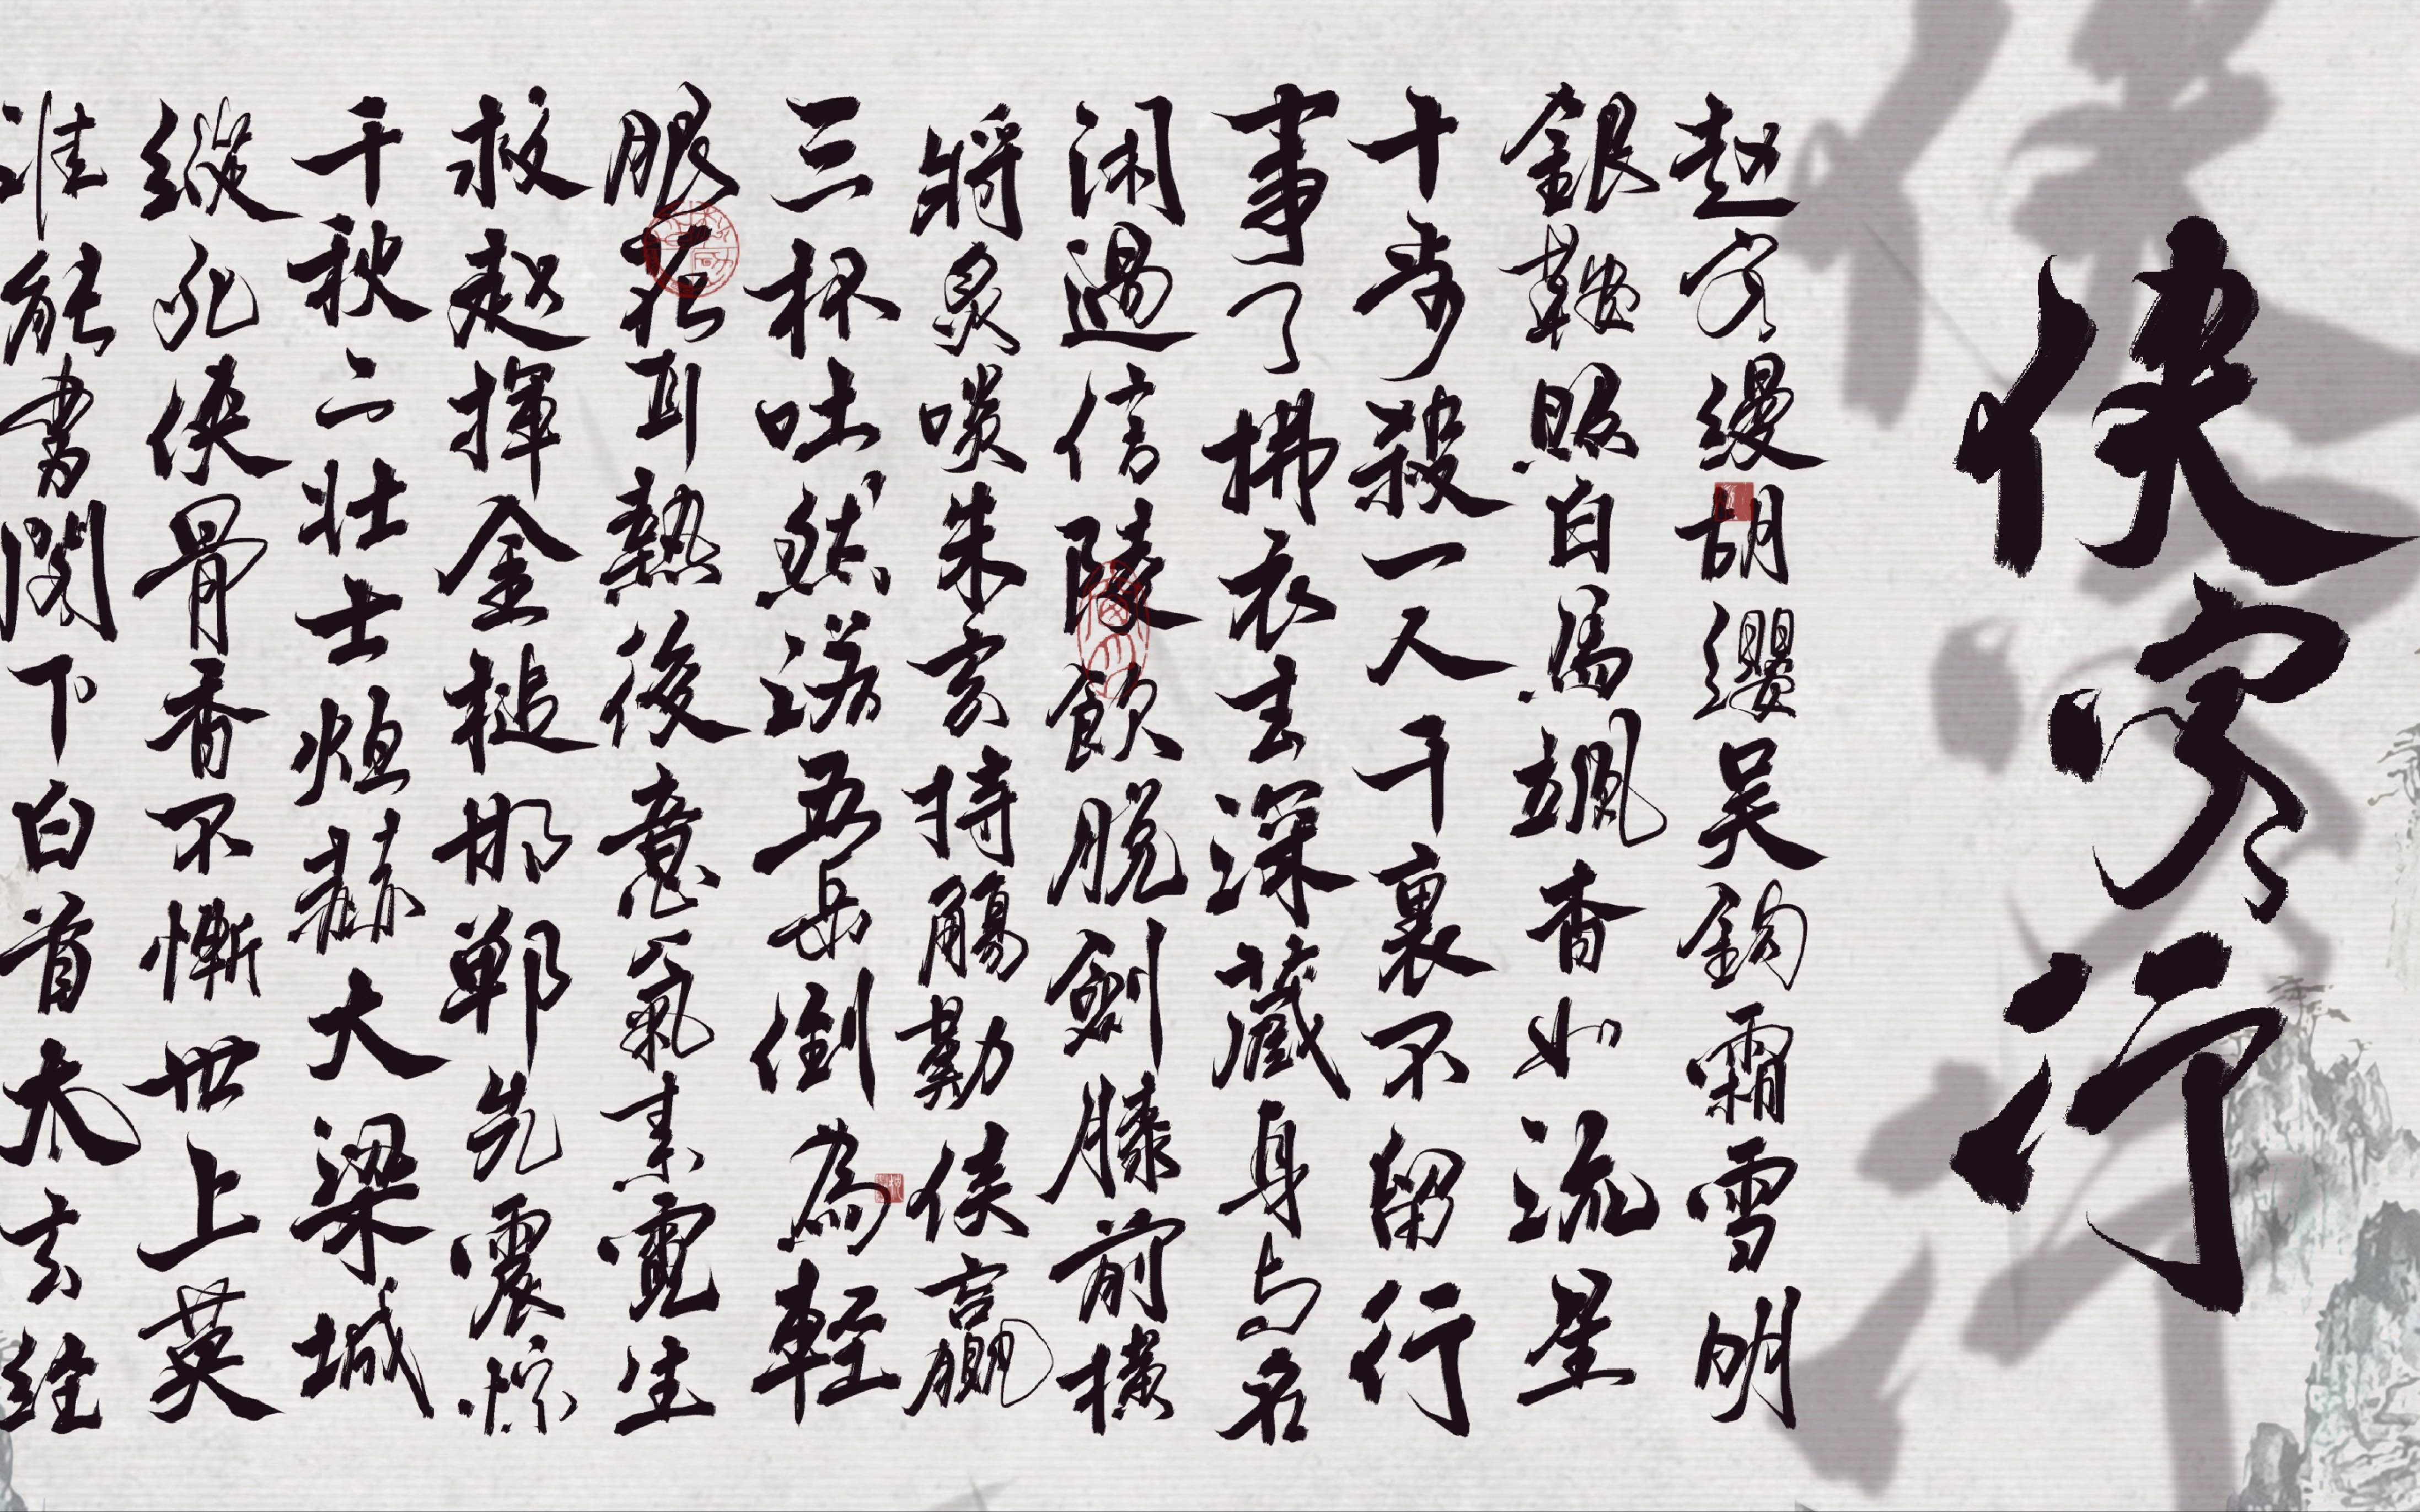 侠客行
趙客縵胡纓吴鈎霜雪明
銀鞍照白馬颯沓如流星
十步殺一人千裏不留行
事了拂衣去深藏身与名
闲過信陵飲脱劍膝前横
將炙啖朱亥持觴勸侯嬴
三杯吐然诺五岳倒為輕
眼花耳熱後意氣素霓生
救趙揮金槌邯鄲先震惊
千秋二壮士烜赫大梁城
縱死侠骨香不慚世上英
谁能書閣下白首太玄經